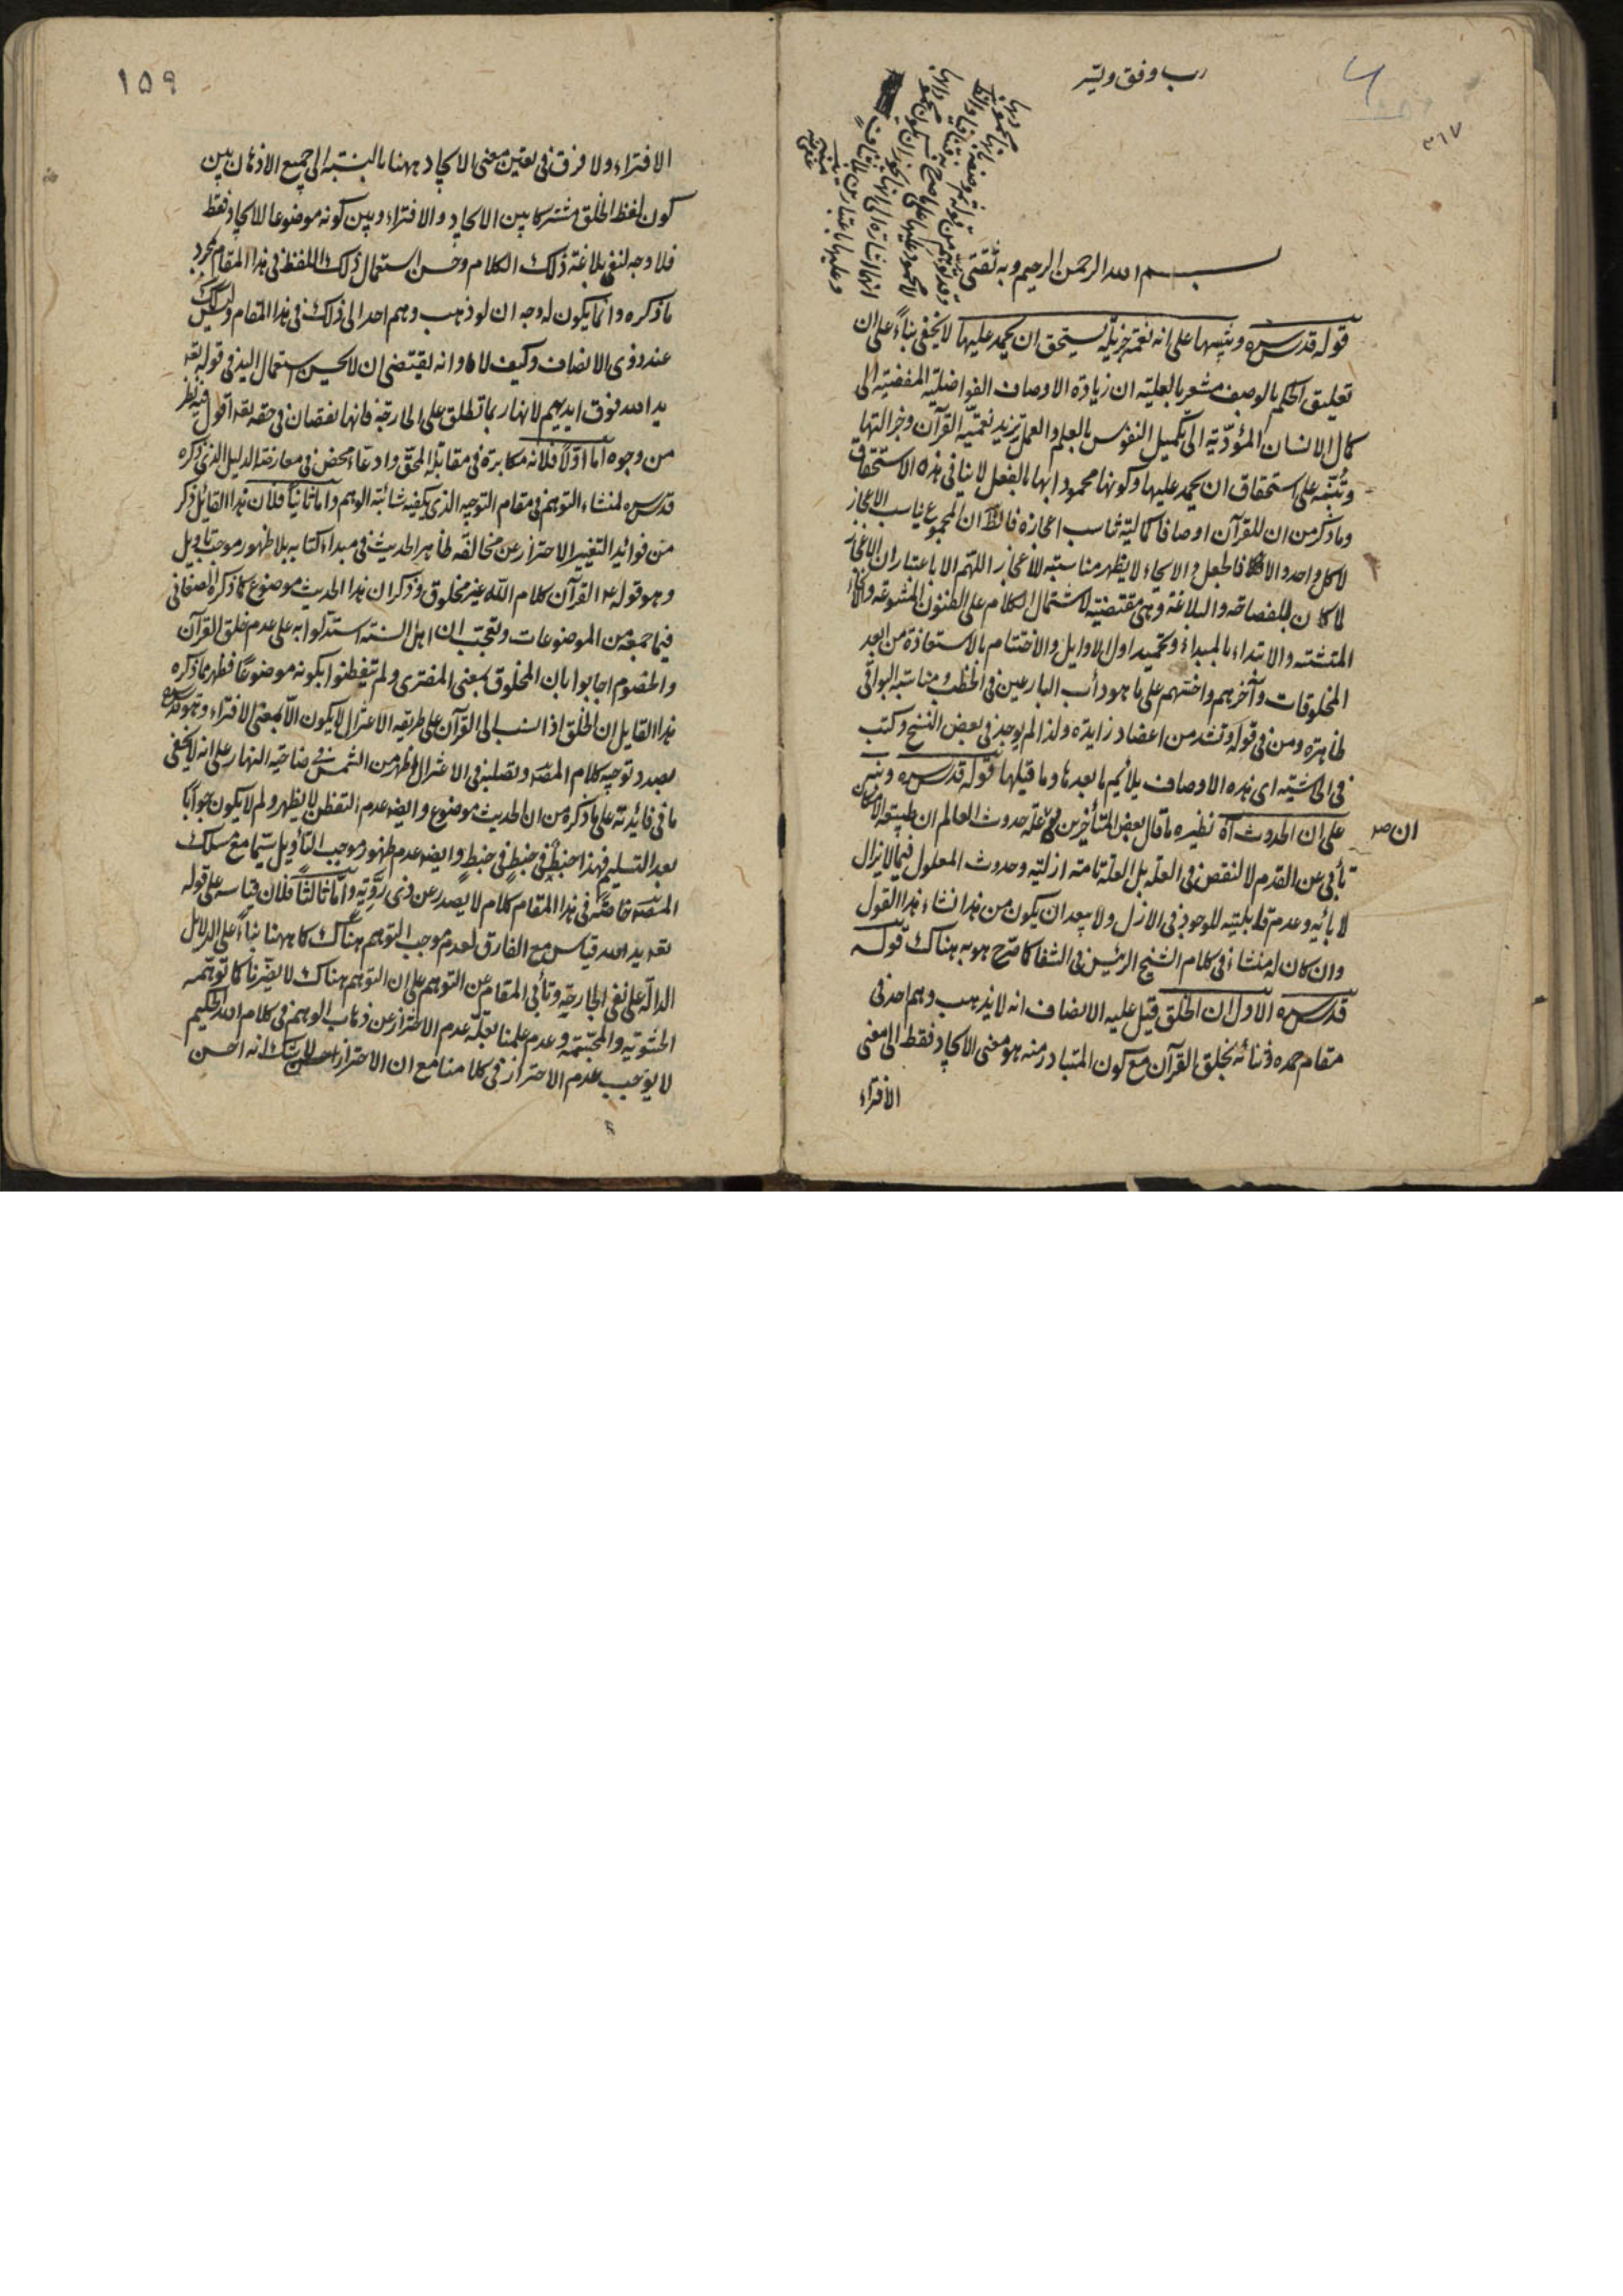 رب وفق ويسر
٢٦٧
بسم الله الرحمن الرحيم وبه ثقتي
قوله قدس سره وتنبيها على انه نعمة جزيلة يستحق ان يحمد عليها لا يخفى بناءً على ان
تعليق الحكم بالوصف مشعر بالعلية ان زيادة الاوصاف الفواضلية المفضية الى
كمال الانسان المؤدية الى تكميل النفوس بالعلم والعمل يزيد نعمية القرآن وجزالتها
وتنبه على استحقاق ان يحمد عليها وكونها محمودا بها بالفعل لا ينافي هذه الاستحقاق
وما ذكر من ان للقرآن اوصافا كمالية تناسب اعجازه فالظ ان المجموع يناسب الاعجاز
لا كل واحد والا فالجعل والايحاء لا يظهر مناسبته للاعجاز اللهم الا باعتبار ان الاعجاز
لما كان للفصاحة والبلاغة وهي مقتضية لاشتمال الكلام على الفنون المتنوعة
المتشتتة والابتداء بالمبداء وتحميد اول الاوايل والاختتام بالاستعاذة من ابعد
المخلوقات وآخرهم واختتهم على ما هو دأب البارعين في الخطب ومناسبة البواقي
ظاهرة ومن في قوله وتشد من اعضاد زايدة ولذا لم يوجد في بعض النسخ وكتب
في الحاشية اى هذه الاوصاف يلائم ما بعدها وما قبلها قوله قدس سره ونبه
على ان الحدوث آه نظيره ما قال بعض المتأخرين في علة حدوث العالم ان طبيعة الامكان
ان صح
تأبى عن القدم لا لنقص في العلة بل العلة تامة ازلية وحدوث المعلول فيما لا يزال
لابائه وعدم قابليته للوجود في الازل ولا يبعد ان يكون من هذا نشاء هذا القول
وان كان له منشاء في كلام الشيخ الرئيس في الشفا كما صرح هو به هناك قوله
قدس سره الاول ان الخلق قيل عليه الانصاف انه لا يذهب وهم احد في
مقام حمده وثنائه بخلق القرآن مع كون المتبادر منه هو معنى الايجاد فقط الى معنى
الافتراء
١٥٩
الافتراء ولا فرق في تعين معنى الايجاد ههنا بالنسبة الى جميع الاذهان بين
كون لفظ الخلق مشتركا بين الايجاد والافتراء وبين كونه موضوعا للايجاد فقط
فلا وجه لنفى بلاغة ذلك الكلام وحسن استعمال ذلك اللفظ في هذا المقام بمجرد
ما ذكره وانما يكون له وجه ان لو ذهب وهم احد الى ذلك في هذا المقام وليس كذلك
عند ذوى الانصاف وكيف لا وانه يقتضى ان لا يحسن استعمال اليد في قوله تعه
يد الله فوق ايديهم لانها ربما تطلق على الجارحة فانها نقصان في حقه تعه اقول فيه نظر
من وجوه اما اولا فلانه مكابرة في مقابلة المحقق وادعاء محض في معارضة الدليل الذي ذكره
قدس سره لمنشاء التوهم في مقام التوجيه الذي يكفيه شائبة الوهم واما ثانيا فلان هذا القائل ذكر
من فوائد التغيير الاحتراز عن مخالفة ظاهر الحديث في مبداء كتابه بلا ظهور موجب تأويل
وهو قوله ع القرآن كلام الله غير مخلوق وذكر ان هذا الحديث موضوع كما ذكره الصغاني
فيما جمعه من الموضوعات وتعجب ان اهل السنة استدلوا به على عدم خلق القرآن
والخصوم اجابوا بان المخلوق بمعنى المفترى ولم يتفطنوا بكونه موضوعا فظهر مما ذكره
هذا القايل ان الخلق اذا نسب الى القرآن على طريقة الاعتزال لا يكون الا بمعنى الافتراء وهو قدس سره
بصدد توجيه كلام المصه وتصلبه في الاعتزال اظهر من الشمس في ضاحية النهار على انه لا يخفى
ما في فائدته على ما ذكره من ان الحديث موضوع وايضا عدم التفطن لا يظهر ولم لا يكون جوابا
بعد التسليم فهذا خبط في خبط في خبط وايضا عدم ظهور موجب التأويل سيما مع مسلك
المصه خاصة في هذا المقام كلام لا يصدر عن ذى روية واما ثالثا فلان قياسه على قوله
تعه يد الله قياس مع الفارق لعدم موجب التوهم هناك كما ههنا بناءً على الدلايل
الدالة على نفى الجارحة وتأبى المقام عن التوهم على ان التوهم هناك لا يضرنا كما توهمه
الحشوية والمجسمة وعدم علمنا بعلة عدم الاحتراز عن ذهاب الوهم في كلام الله الحكيم
لا يوجب عدم الاحتراز في كلامنا مع ان الاحتراز لا شك انه احسن